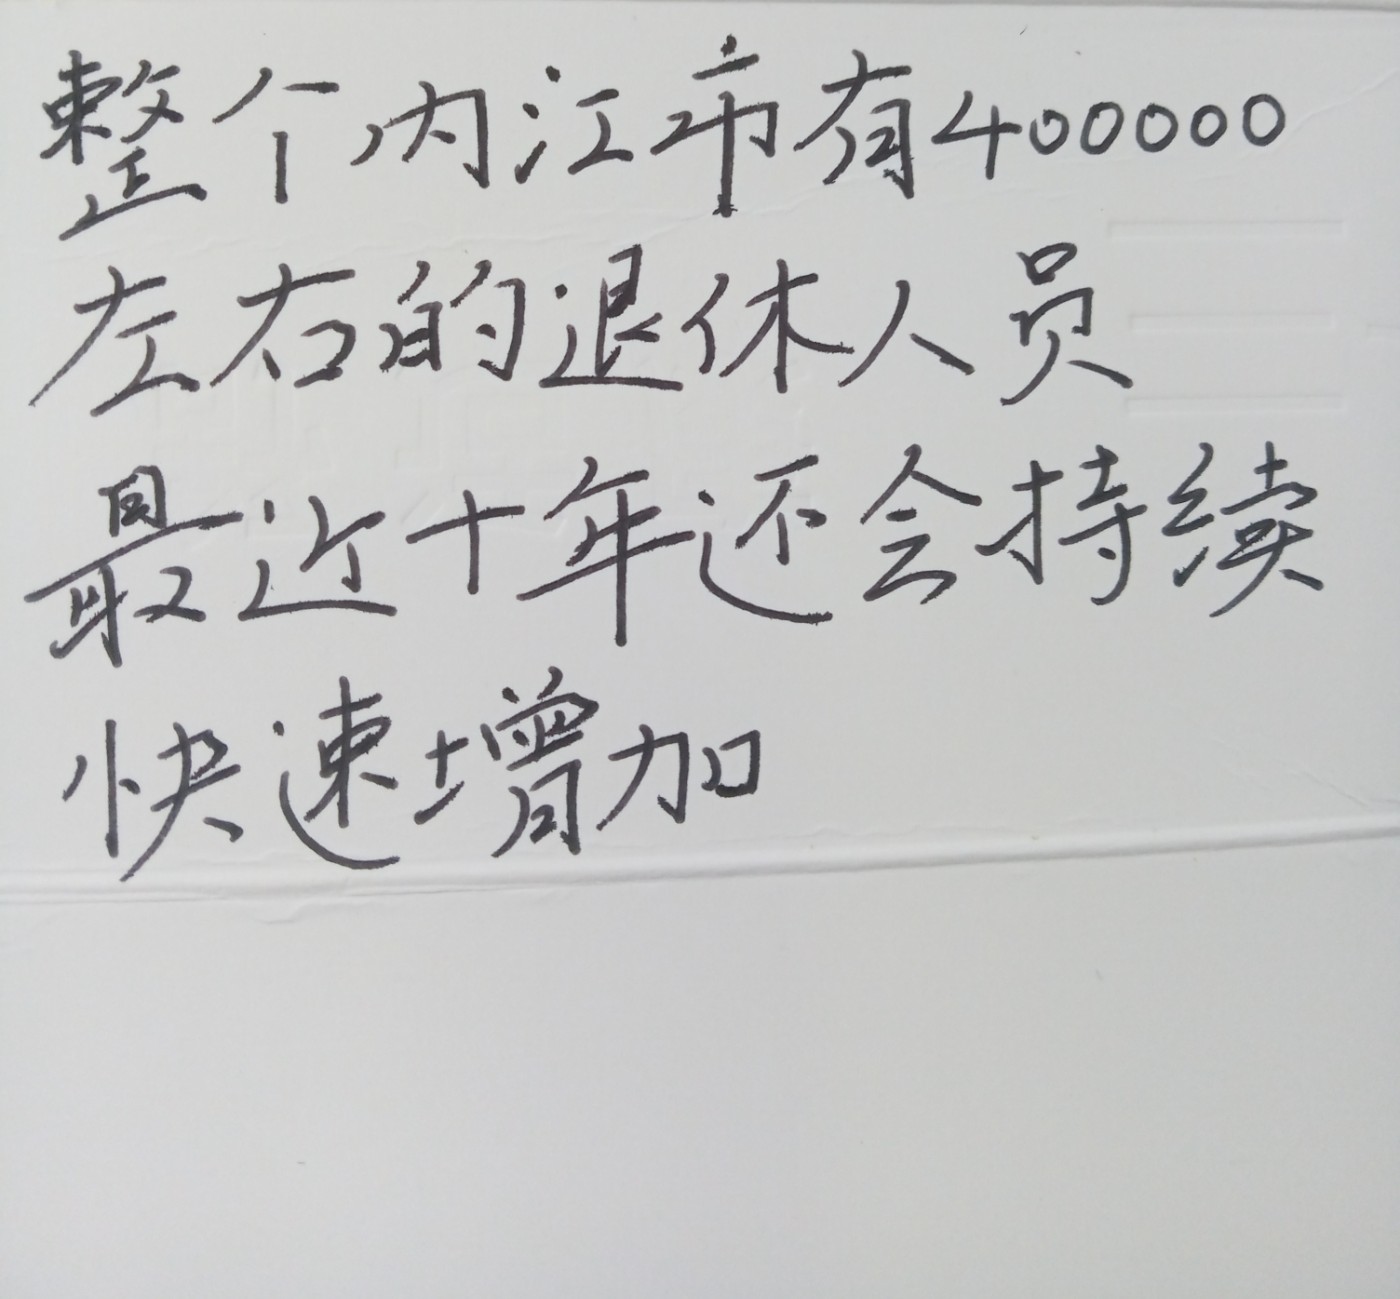 整个内江市有400000
左右的退休人员
最近十年还会持续
快速增加